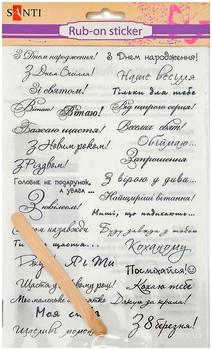 SANTI
Rub-on sticker
З Днем народження!
З Днем народження!
З Днем Весілля!
Наше весілля
Зі святом!
Тільки для тебе
Вітаю! Вітаю!
Від щирого серця!
Бажаю щастя!
Веселих свят!
З Новим роком!
Обіцяю...
З Різдвом!
Запрошення
Головне не подарунок,
а увага ...
З вірою у дива...
З Ювілеєм!
Найщиріші вітання!
Миті, що надихають...
незабаром
Будь завжди з тобою
щастя...
Коханому
Я і Ти
Посміхайся!
Щастя у Новому році!
Кохаю тебе
Моє маленьке
Дякую за
Моя сім'я
Щасливі
З 8 березня!